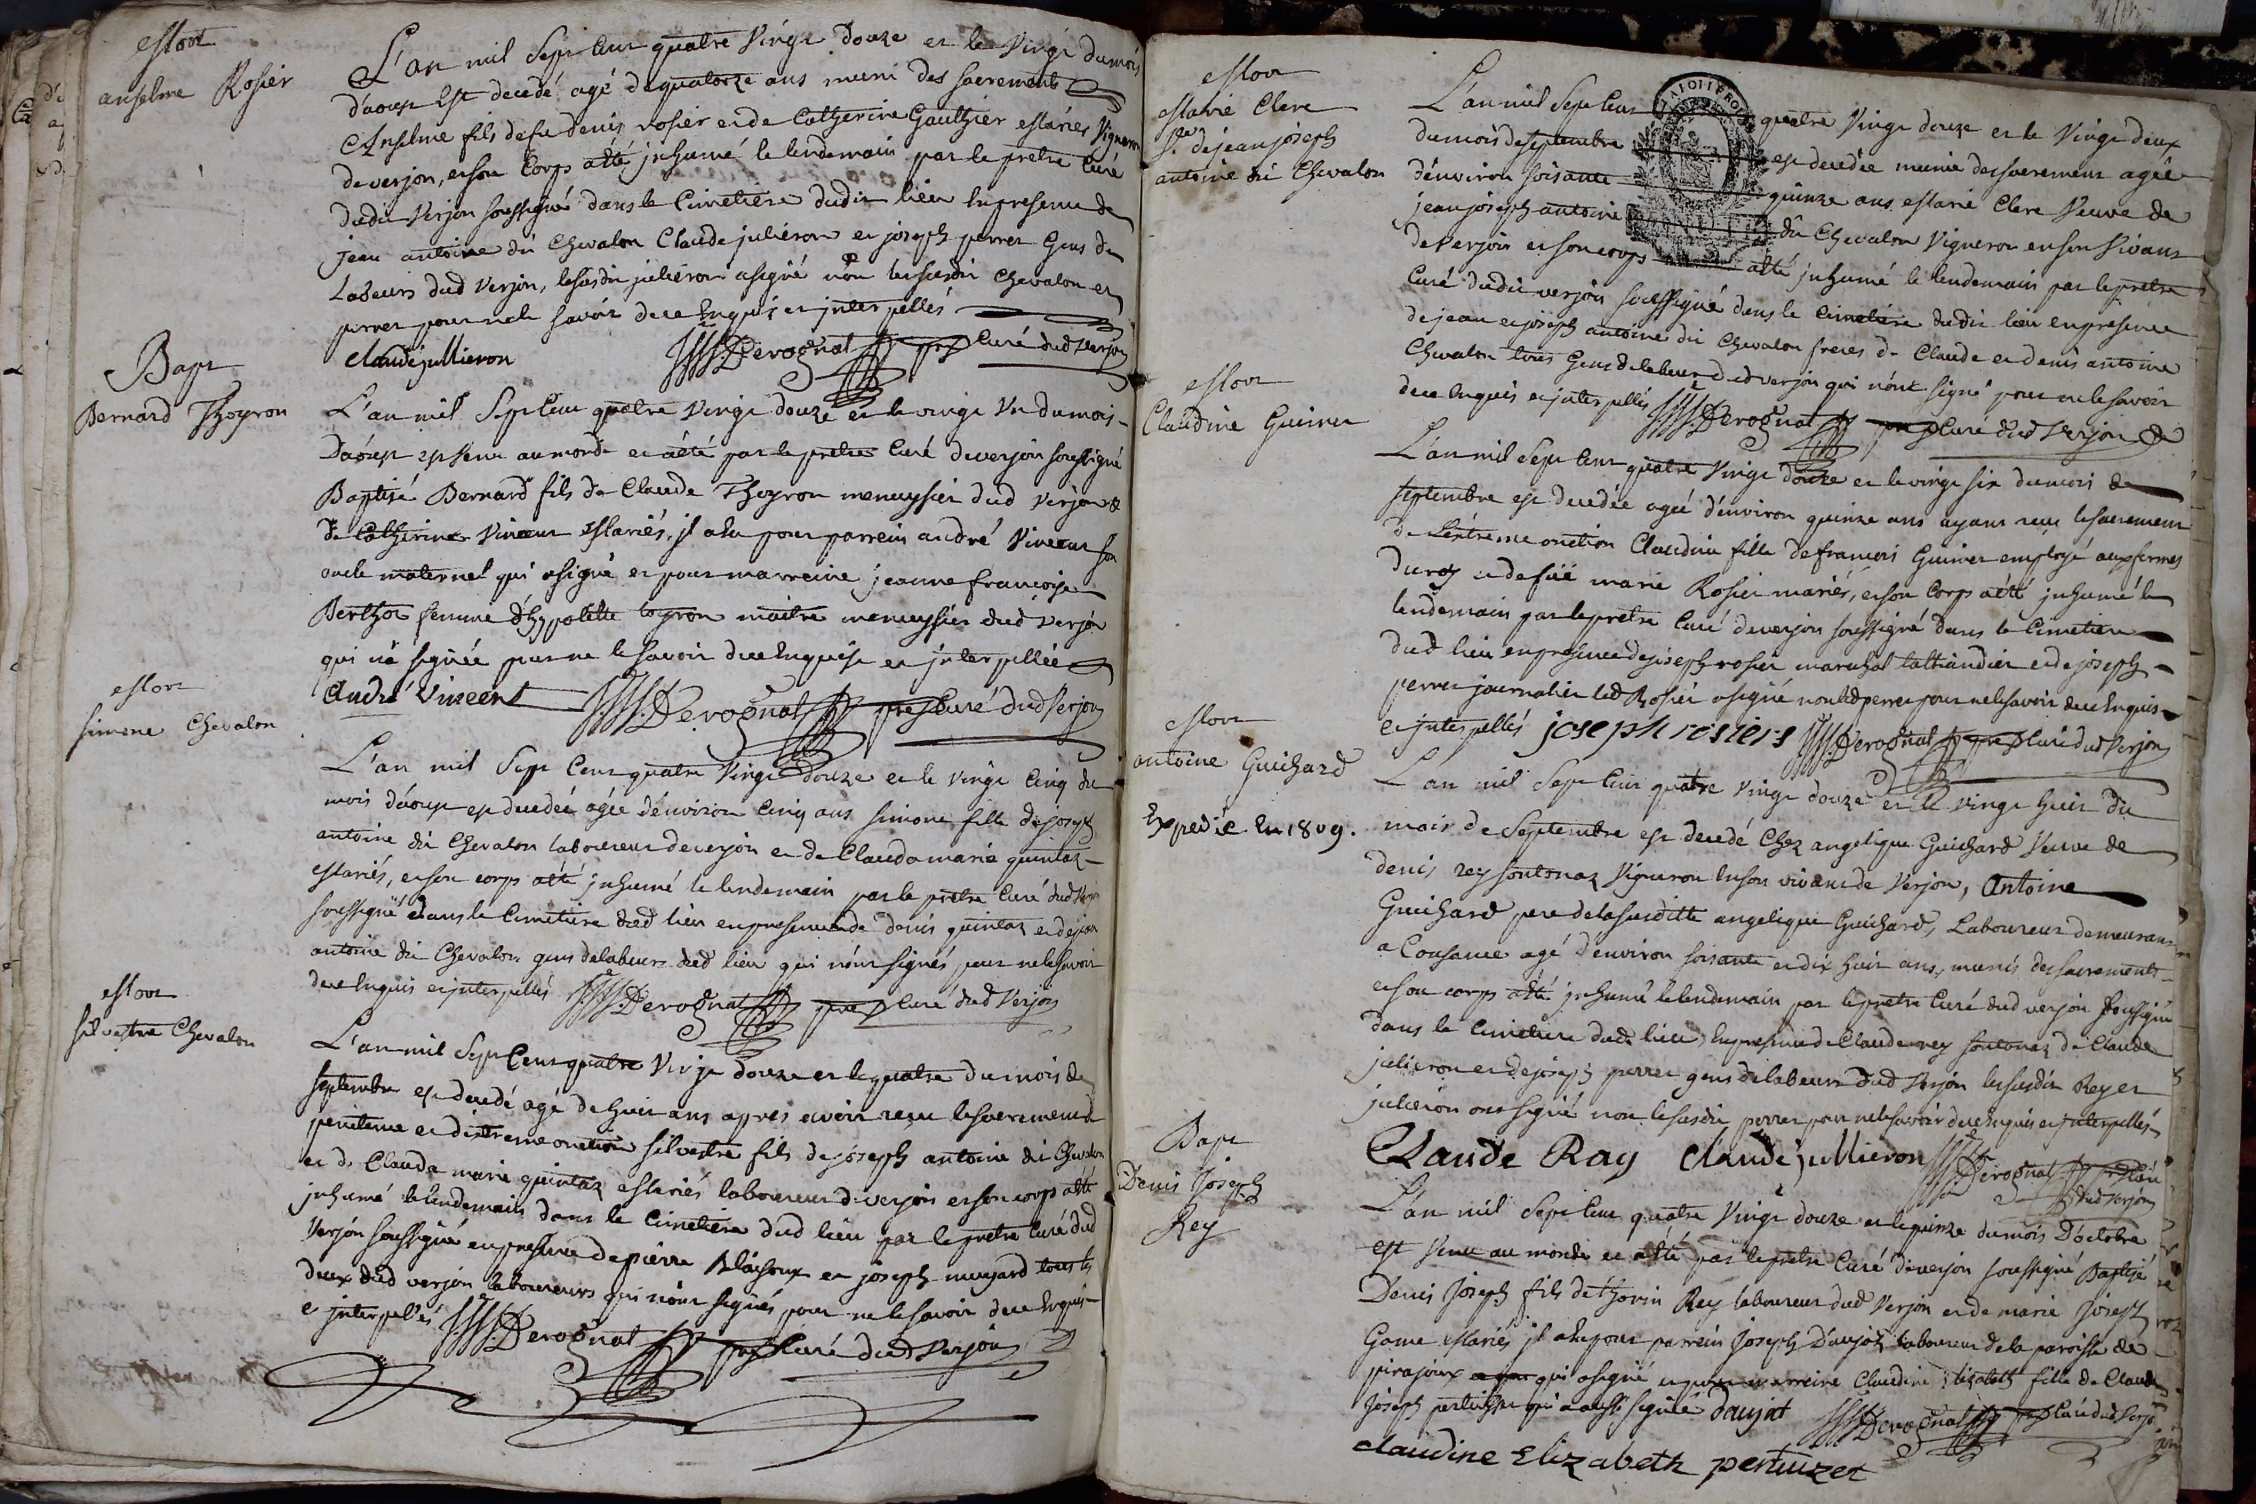 Mort
anselme Rosier
L'an mil Sept Cent quatre Vingt douze et le Vingt du mois
d'aoust Est decedé agé de quatorze ans muni des sacrements
Anselme fils de feu denis rosier et de Catherine Gauthier Mariés Vigneron
de verjon, et son Corps a été jnhumé le lendemain par le prêtre Curé
dudit Verjon soussigné dans le Cimetiere dudit lieu En presence de
jean antoine du Chevalon Claude julieron et joseph perret Gens de
Labeurs dud Verjon, le susdit julieron a signé non les susdit Chevalon et
perret pour ne le savoir de ce Enquis et jnterpellés
claude jullieron Derognat ptre Curé dud Verjon
Bapt
Bernard Thoyron
L'an mil Sept Cent quatre Vingt douze et le vingt Un du mois
D'aoust est venu au monde et a été par le prêtre Curé de verjon soussigné
Baptisé Bernard fils de Claude Thoyron menuysier dud Verjon &
de Catherine Vincent Mariés, jl a eu pour parrein andré Vincent son
oncle maternel qui a signé et pour marreine jeanne francoise
Berthot femme d'hypolitte toyron maitre menuysier dud Verjon
qui n'a signée pour ne le savoir de ce Enquise et jnterpellée
André Vincent Derognat ptre Curé dud Verjon
Mort
simone Chevalon
L'an mil Sept Cent quatre Vingt douze et le vingt Cinq du
mois d'aoust est decedée agée d'environ Cinq ans simone fille de joseph
antoine du Chevalon laboureur de verjon et de Clauda marie quintaz
Mariés, et son corps a été jnhumé le lendemain par le prêtre Curé dud Verjon
soussigné dans le Cimetiere dud lieu en presence de denis quintaz et de jean
antoine du Chevalon gens de labeurs dud lieu qui n'ont signés pour ne le savoir
de ce Enquis et jnterpellés Derognat ptre Curé dud Verjon
Mort
silvestre Chevalon
L'an mil Sept Cent quatre Vingt douze et le quatre du mois de
septembre est decedé agé de huit ans apres avoir reçu les sacrements de
penitence et d'extreme onction silvestre fils de joseph antoine du Chevalon
et de Clauda marie quintaz Mariés laboureur de verjon et son corps a été
jnhumé le lendemain dans le Cimetiere dud lieu par le prêtre Curé dud
Verjon soussigné en presence de pierre et joseph mugard tous les
deux dud verjon laboureurs qui n'ont signés pour ne le savoir de ce Enquis
et jnterpellés Derognat ptre Curé dud Verjon
Mort
Marie Clere
Ve de jean joseph
antoine du Chevalon
L'an mil Sept Cent quatre Vingt douze et le Vingt deux
du mois de septembre est decedée munie des sacrements agée
d'environ soisante quinze ans Marie Clere Veuve de
jean joseph antoine du Chevalon Vigneron en son Vivant
de verjon et son corps a été jnhumé le lendemain par le prêtre
Curé dudit verjon soussigné dans le Cimetiere dudit lieu en presence
de jean et joseph antoine du Chevalon freres de Claude et denis antoine
Chevalon tous Gens de labeur dud verjon qui n'ont signé pour ne le savoir
de ce Enquis et jnterpellés Derognat ptre Curé dud Verjon
Mort
Claudine Guinet
L'an mil Sept Cent quatre Vingt douze et le vingt six du mois de
septembre est decedée agée d'environ quinze ans ayant reçu le sacrement
de l'extreme onction Claudine fille de francois Guinet employé aux fermes
du roy et de feüe marie Rosier mariés, et son Corps a été jnhumé le
lendemain par le prêtre Curé de verjon soussigné dans le Cimetiere
dud lieu en presence de joseph rosier marechal taillandier et de joseph
perret journalier led Rosier a signé non led perret pour ne le savoir de ce Enquis
et jnterpellés joseph rosiers Derognat ptre Curé dud Verjon
Mort
antoine Guichard
Expedié En 1809.
L'an mil Sept Cent quatre Vingt douze et le vingt huit du
mois de Septembre est decedé Chez angelique Guichard Veuve de
denis rey fontonaz Vigneron En son vivant de Verjon, Antoine
Guichard pere de la susditte angelique Guichard, Laboureur demeurant
a Cousance agé d'environ soisante et dix huit ans, munis des sacrements
et son corps a été jnhumé le lendemain par le prêtre Curé dud verjon soussigné
dans le Cimetiere dud lieu En presence de Claude rey fontonaz de Claude
julieron et de joseph perret gens de labeurs dud Verjon les susdit Rey et
julieron ont signé non le susdit perret pour ne le savoir de ce Enquis et jnterpellés
Claude Ray claude jullieron Derognat ptre Curé
dud Verjon
Bapt
Denis Joseph
Rey
L'an mil Sept Cent quatre Vingt douze et le quinze du mois D'octobre
est Venu au monde et a été par le prêtre Curé de verjon soussigné Baptisé
Denis Joseph fils de thorin Rey laboureur dud Verjon et de marie Joseph
Game Mariés jl a eu pour parrein Joseph Daujat laboureur de la paroisse de
pirajoux qui a signé et pour marreine Claudine Elizabeth fille de Claude
Joseph pertuizet qui a aussi signée daujat Derognat ptre Curé dud Verjon
claudine Elizabeth pertuizet